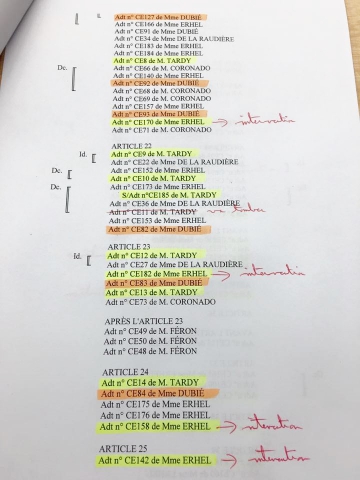 Adt n° CE127 de Mme DUBIÉ
Adt n° CE166 de Mme ERHEL
Adt n° CE91 de Mme DUBIÉ
Adt n° CE34 de Mme DE LA RAUDIÈRE
Adt n° CE183 de Mme ERHEL
Adt n° CE184 de Mme ERHEL
Adt n° CE8 de M. TARDY
Dc. Adt n° CE66 de M. CORONADO
Adt n° CE140 de Mme ERHEL
Adt n° CE92 de Mme DUBIÉ
Adt n° CE68 de M. CORONADO
Adt n° CE69 de M. CORONADO
Adt n° CE157 de Mme ERHEL
Adt n° CE93 de Mme DUBIÉ
Adt n° CE170 de Mme ERHEL → intervention
Adt n° CE71 de M. CORONADO
ARTICLE 22
Id. Adt n° CE9 de M. TARDY
Adt n° CE22 de Mme DE LA RAUDIÈRE
Dc. Adt n° CE152 de Mme ERHEL
Adt n° CE10 de M. TARDY
Dc. Adt n° CE173 de Mme ERHEL
S/Adt n°CE185 de M. TARDY
Adt n° CE36 de Mme DE LA RAUDIÈRE
Adt n° CE11 de M. TARDY va tomber
Adt n° CE153 de Mme ERHEL
Adt n° CE82 de Mme DUBIÉ
ARTICLE 23
Id. Adt n° CE12 de M. TARDY
Adt n° CE27 de Mme DE LA RAUDIÈRE
Adt n° CE182 de Mme ERHEL → intervention
Adt n° CE83 de Mme DUBIÉ
Adt n° CE13 de M. TARDY
Adt n° CE73 de M. CORONADO
APRÈS L'ARTICLE 23
Adt n° CE49 de M. FÉRON
Adt n° CE50 de M. FÉRON
Adt n° CE48 de M. FÉRON
ARTICLE 24
Adt n° CE14 de M. TARDY
Adt n° CE84 de Mme DUBIÉ
Adt n° CE175 de Mme ERHEL
Adt n° CE176 de Mme ERHEL
Adt n° CE158 de Mme ERHEL → intervention
ARTICLE 25
Adt n° CE142 de Mme ERHEL → intervention